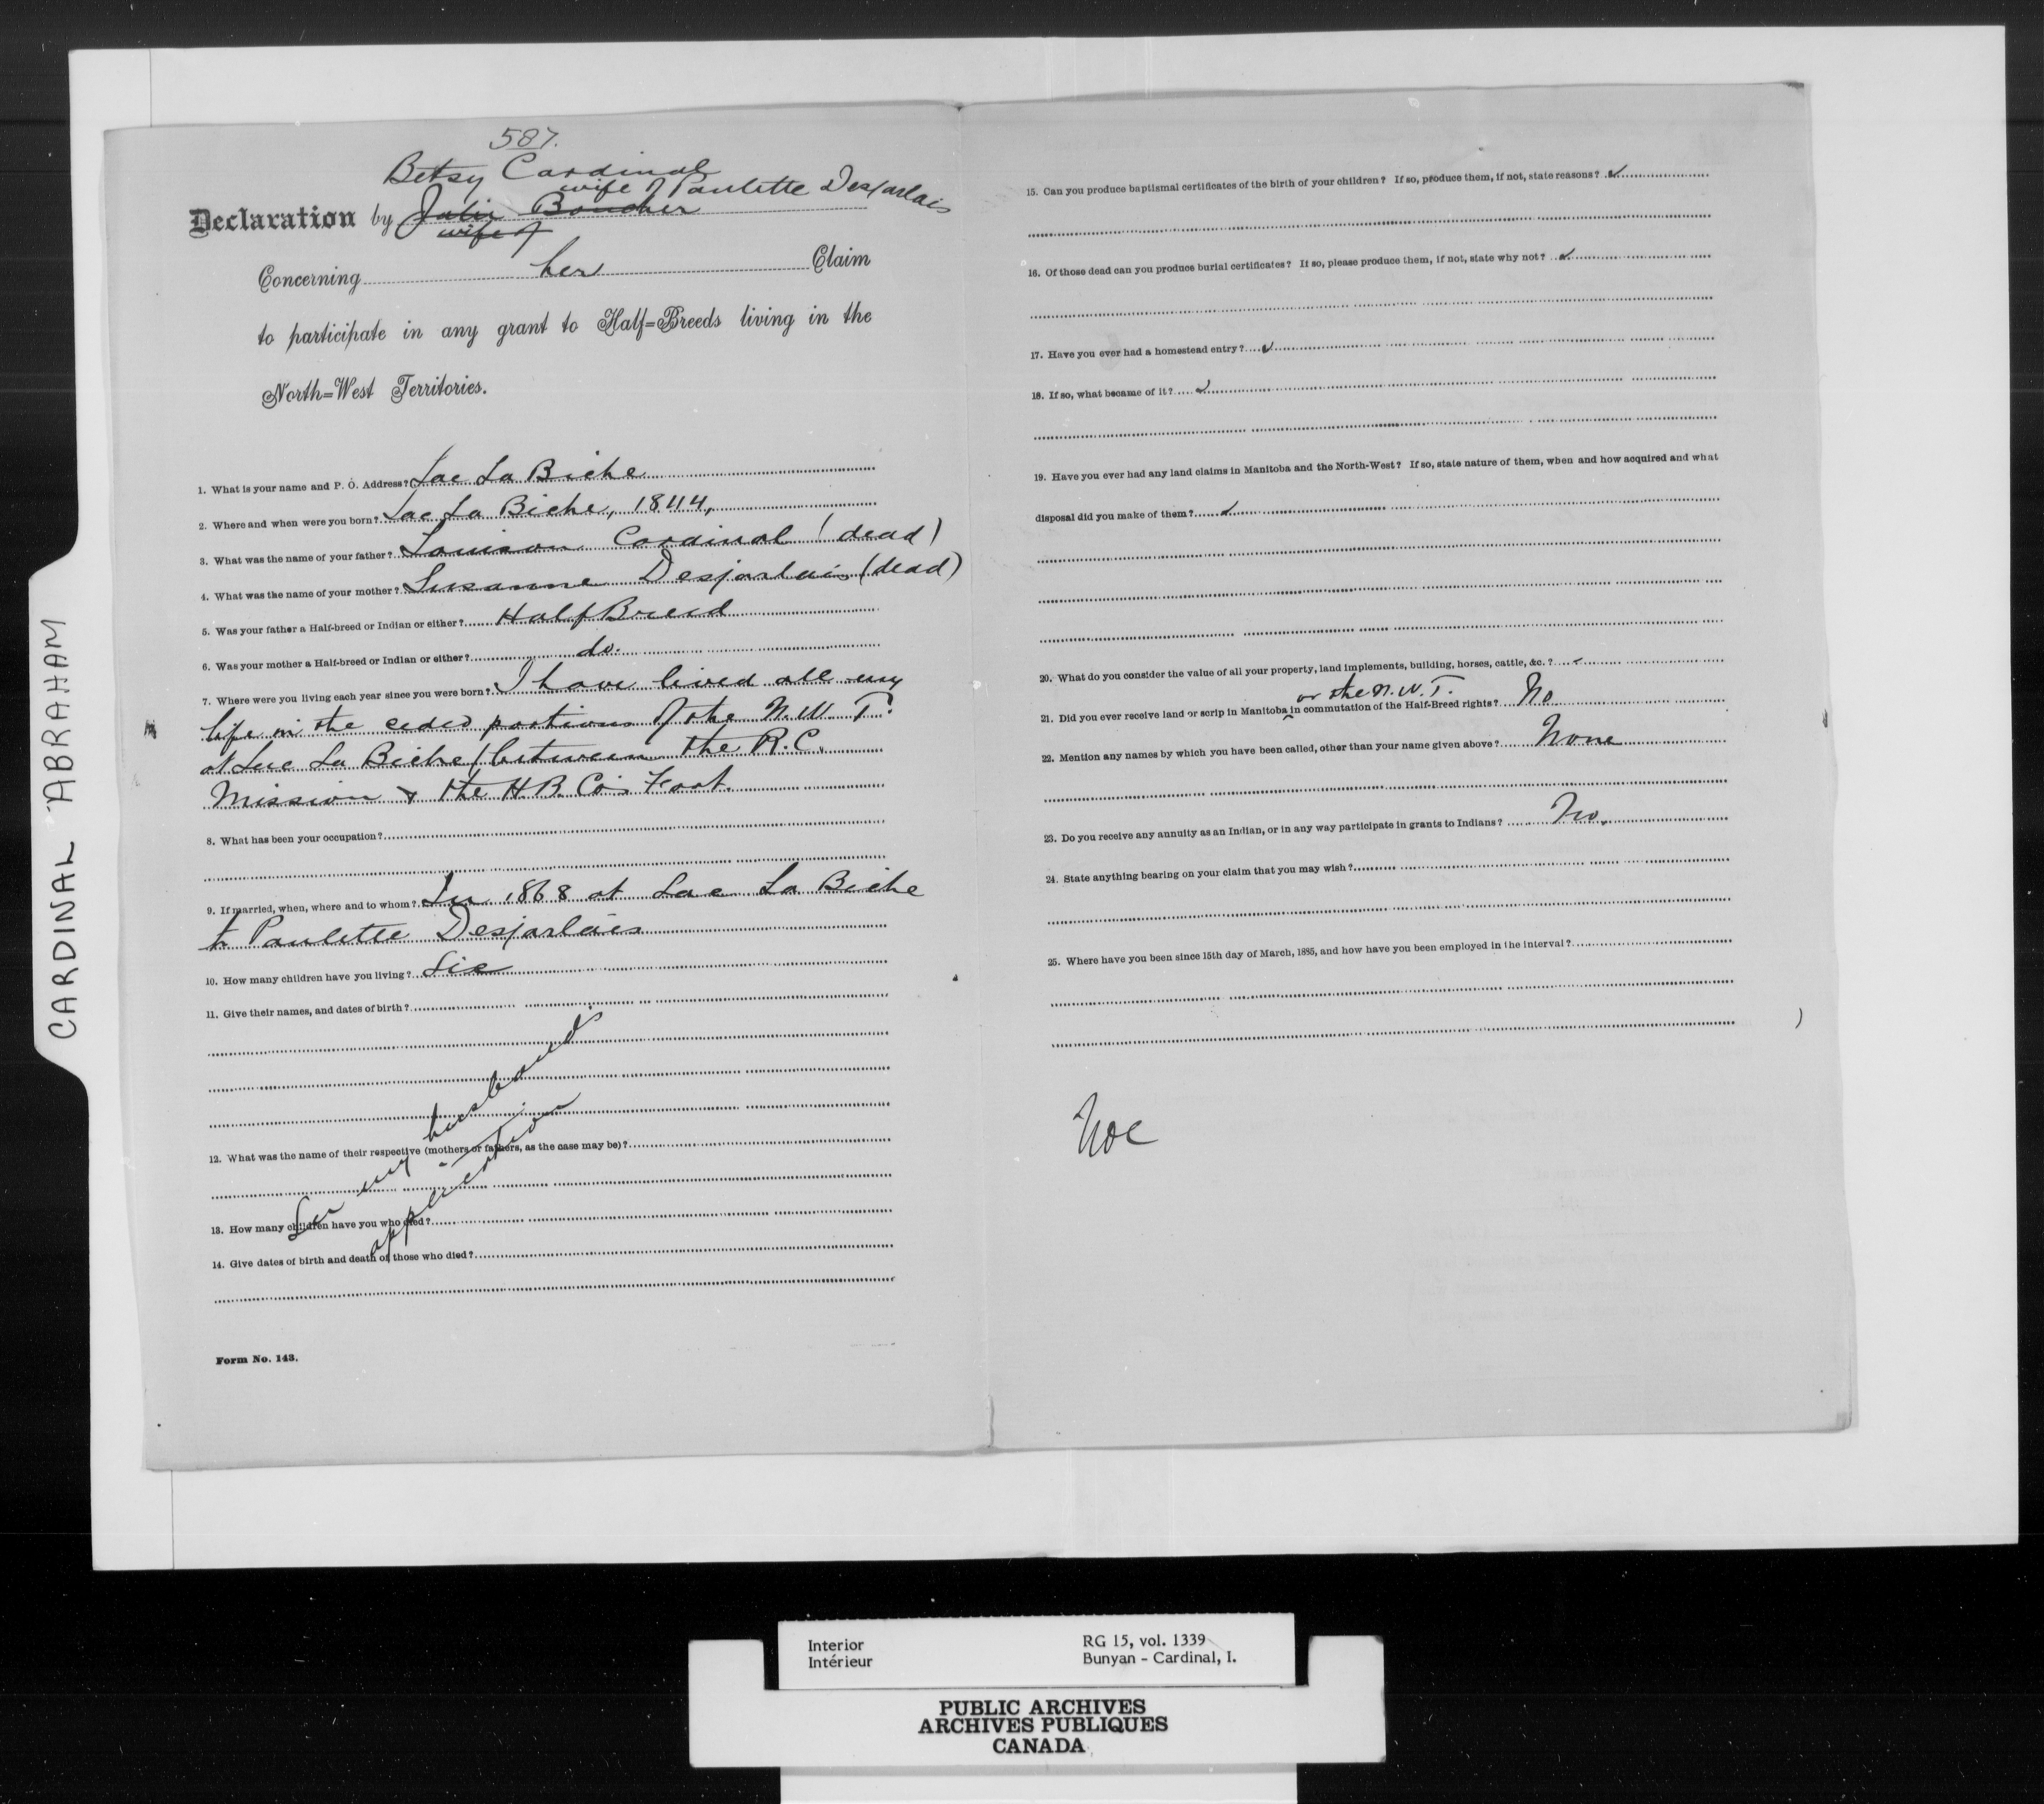 CARDINAL ABRAHAM
587.
Betsy Cardinal
wife of Paulette Desjarlais
Declaration by Julie Boucher
wife of
Concerning her Claim
to participate in any grant to Half=Breeds living in the
North=West Territories.
1. What is your name and P. O. Address? Lac La Biche
2. Where and when were you born? Lac La Biche, 1844,
3. What was the name of your father? Louison Cardinal (dead)
4. What was the name of your mother? Susanne Desjarlais (dead)
5. Was your father a Half-breed or Indian or either? Half Breed
6. Was your mother a Half-breed or Indian or either? do.
7. Where were you living each year since you were born? I have lived all my
life in the ceded portions of the N. W. T.
at Lac La Biche between the R. C.
Mission & the H B. Co's Foot.
8. What has been your occupation?
9. If married, when, where and to whom? In 1868 at Lac La Biche
to Paulette Desjarlais
10. How many children have you living? Six
11. Give their names, and dates of birth?
12. What was the name of their respective (mothers or fathers, as the case may be)?
See my husband's
application
13. How many children have you who died?
14. Give dates of birth and death of those who died?
Form No. 143.
15. Can you produce baptismal certificates of the birth of your children? If so, produce them, if not, state reasons? ✓
16. Of those dead can you produce burial certificates? If so, please produce them, if not, state why not? ✓
17. Have you ever had a homestead entry? ✓
18. If so, what became of it? ✓
19. Have you ever had any land claims in Manitoba and the North-West? If so, state nature of them, when and how acquired and what
disposal did you make of them? ✓
20. What do you consider the value of all your property, land implements, building, horses, cattle, &c.? ✓
or the N. W. T.
21. Did you ever receive land or scrip in Manitoba ^ in commutation of the Half-Breed rights? No
22. Mention any names by which you have been called, other than your name given above? None
23. Do you receive any annuity as an Indian, or in any way participate in grants to Indians? No.
24. State anything bearing on your claim that you may wish?
25. Where have you been since 15th day of March, 1885, and how have you been employed in the interval?
Interior
Intérieur
RG 15, vol. 1339
Bunyan - Cardinal, I.
PUBLIC ARCHIVES
ARCHIVES PUBLIQUES
CANADA